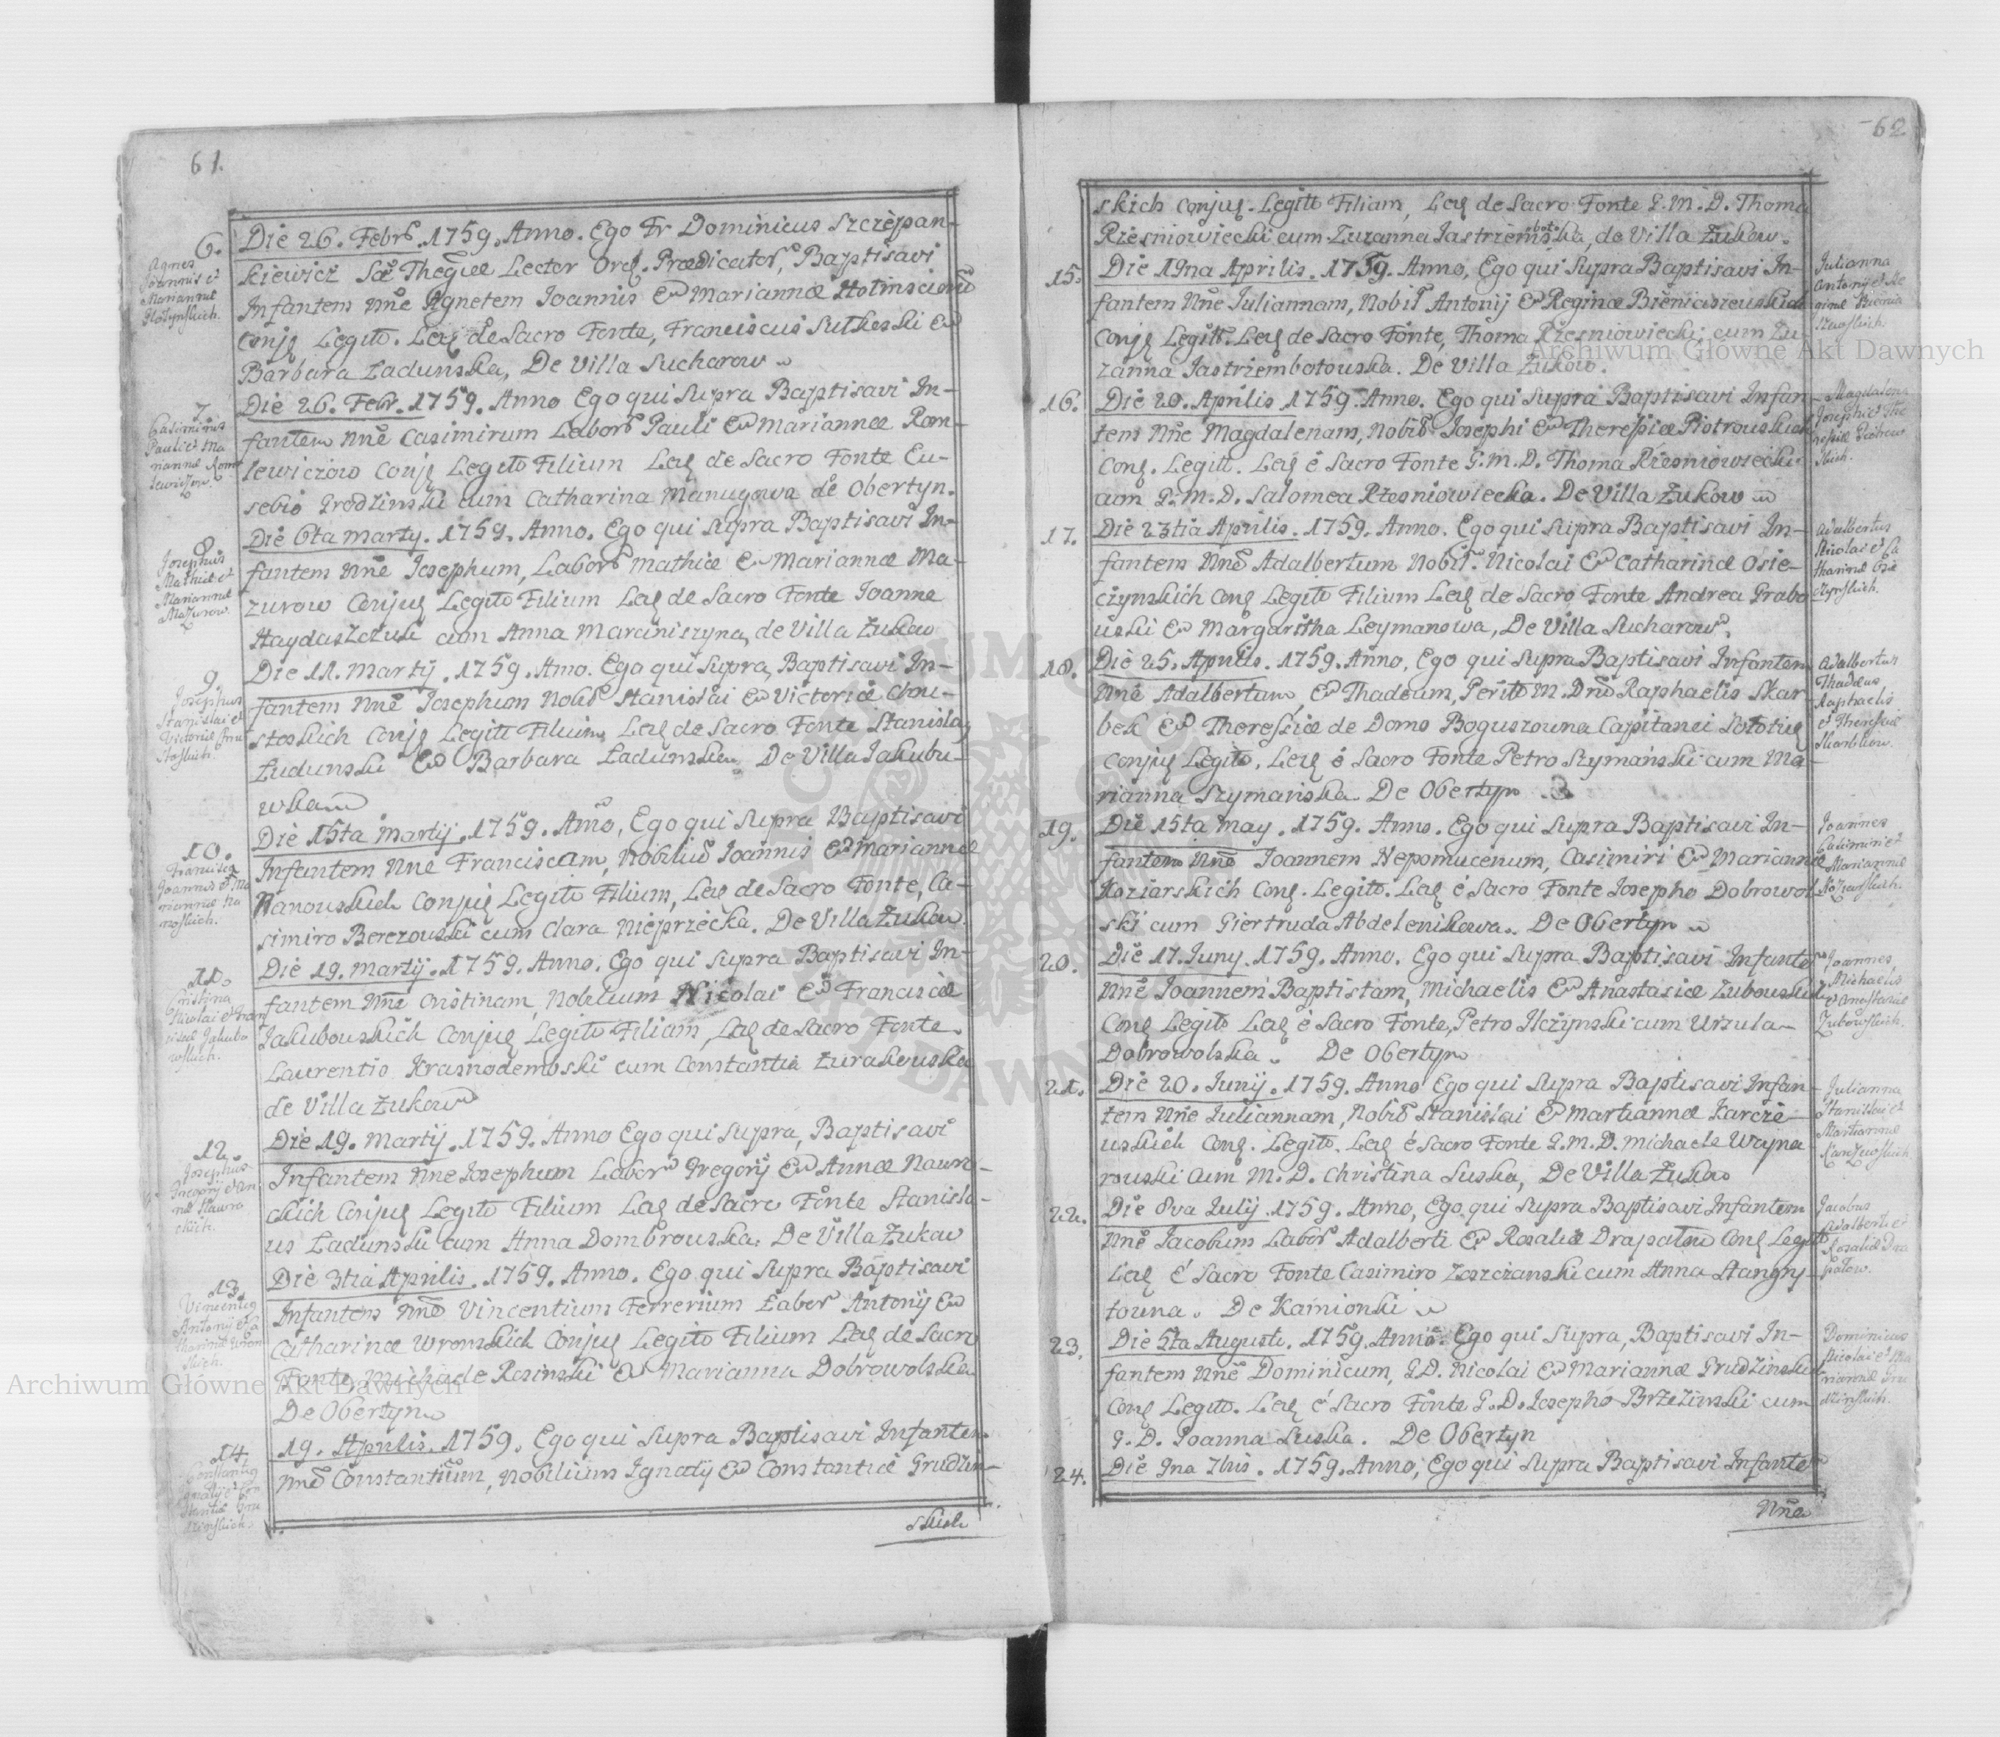 61.
6.
Agnes
Joannis et
Mariannæ
Hołynskich.
Die 26. Febrs. 1759. Anno. Ego Fr Dominicus Szczepan-
kiewicz Sæ Theglæ Lector Ord. Prædicators, Baptisavi
Infantem Nne Agnetem Joannis & Mariannæ
Conjg Legito. Leg de Sacro Fonte, Franciscus Sutkeski &
Barbara Ladunska, De Villa Sucharow
7.
Casimirus
Pauli et Ma
riannæ Rom
lewiczow.
Die 26. Febr. 1759. Anno Ego qui Supra Baptisavi In-
fantem Nne Casimirum Labors Pauli & Mariannæ Rom-
lewiczow Conjg Legito Filium Leg de Sacro Fonte Eu-
sebio Grodzinski cum Catharina Manugowa de Obertyn.
8.
Josephus
Mathiæ et
Mariannæ
Mazurow.
Die 6ta Marty. 1759. Anno. Ego qui Supra Baptisavi In-
fantem Nne Josephum, Labors Mathiæ & Mariannæ Ma-
zurow Conjug Legito Filium Leg de Sacro Fonte Joanne
Hagdaszczuk cum Anna Marciniszyna, de Villa Żukow
9.
Josephus
Stanislai et
Victoriæ Chru
stoskich.
Die 11. Martij. 1759. Anno. Ego qui Supra Baptisavi In-
fantem Nne Josephum Nobils Stanislai & Victoriæ Chru-
stoskich Conjg Legito Filium, Leg de Sacro Fonte Stanislao
Ładunski & Barbara Ladunska. De Villa Jakubu-
wkam
10.
Francisca
Joannis et Ma
riannæ Ra
noskich.
Die 15ta Martij. 1759. Anno, Ego qui Supra Baptisavi
Infantem Nne Franciscam, Nobilium Joannis & Mariannæ
Ranouskich Conjug Legito Filium, Leg de Sacro Fonte, Ca-
simiro Berezouski cum Clara Nieprzecka. De Villa Żukow.
11.
Cristina
Nicolai et Fran
ciscæ Jakubo
wskich.
Die 19. Martij. 1759. Anno. Ego qui Supra Baptisavi In-
fantem Nne Cristinam, Nobilium Nicolai & Franciscæ
Jakubouskich Conjug Legito Filiam, Leg de Sacro Fonte
Laurentio Krasnodemoski cum Constantia Żurakouska
de Villa Żukow
12.
Josephus
Gregorij et An
næ Nawro
ckich.
Die 19. Martij. 1759. Anno Ego qui Supra, Baptisavi
Infantem Nne Josephum Labors Gregorij & Annæ Nawro-
ckich Conjug Legito Filium Leg de Sacro Fonte Stanisla-
us Ładunski cum Anna Dombrouska. De Villa Żukow
13.
Vincentius
Antonij et Ca
tharinæ Wron
skich.
Die 3tia Aprilis. 1759. Anno. Ego qui Supra Baptisavi
Infantem Nne Vincentium Ferrerium Labors Antonij &
Catharinæ Wronskich Conjug Legito Filium Leg de Sacro
Fonte, Michaele Rosinski & Marianna Dobrowolska
De Obertyn
14.
Constantius
Ignatij et Con
stantiæ Gru
dzinskich.
19. Aprilis. 1759. Ego qui Supra Baptisavi Infantem
Nne Constantium, Nobilium Ignatij & Constantiæ Grudzin-
skich
62
skich Conjug. Legitt Filiam, Leg de Sacro Fonte G. M. D. Thoma
Rzesniowiecki cum Zuzanna Jastrzembotska, de Villa Żukow.
15.
Die 19na Aprilis. 1759. Anno, Ego qui Supra Baptisavi In-
fantem Nne Juliannam, Nobils Antonij & Reginæ Bieniaszeuskich
Conjg Legitt. Leg de Sacro Fonte, Thoma Rzesniowiecki, cum Zu-
zanna Jastrzembotouska. De Villa Żukow.
Julianna
Antonij et Re
ginæ Bienia
szewskich.
16.
Die 20. Aprilis 1759. Anno. Ego qui Supra Baptisavi Infan-
tem Nne Magdalenam, Nobils Josephi & Theressiæ Piotrouskich
Cong. Legitt. Leg é Sacro Fonte G. M. D. Thoma Rzesniowiecki
cum G. M. D. Salomea Rzesniowiecka. De Villa Żukow
Magdalena
Josephi et The
ressiæ Piotrow
skich.
17.
Die 23tia Aprilis. 1759. Anno. Ego qui Supra Baptisavi In-
fantem Nne Adalbertum Nobils. Nicolai & Catharinæ Osie-
czynskich Cong Legito Filium Leg de Sacro Fonte Andrea Grabo
uski & Margaritha Leymanowa, De Villa Sucharow.
Adalbertus
Nicolai et Ca
tharinæ Osie
czynskich.
18.
Die 25. Aprilis. 1759. Anno, Ego qui Supra Baptisavi Infantem
Nne Adalbertum, & Thadeum, Perito M. Dno Raphaelis Skar
bek & Theresiæ de Domo Boguszowna Capitanei
Conjug Legito, Leg é Sacro Fonte Petro Szymański cum Ma-
rianna Szymańska. De Obertyn
Adalbertus
Thaddeus
Raphaelis
et Theresiæ
Skarbkow.
19.
Die 15ta May. 1759. Anno. Ego qui Supra Baptisavi In-
fantem Nne Joannem Nepomucenum, Casimiri & Mariannæ
Koziarskich Cong. Legito. Leg é Sacro Fonte Josepho Dobrowol
ski cum Giertruda Abdelenikowa. De Obertyn
Joannes
Casimiri et
Mariannæ
Koziarskich.
20.
Die 17. Juny. 1759. Anno. Ego qui Supra Baptisavi Infante
Nne Joannem Baptistam, Michaelis & Anastasiæ Zubouskich
Cong Legito Leg é Sacro Fonte, Petro Ilczynski cum Urszula
Dobrowolska. De Obertyn
Joannes
Michaelis
et Anastasiæ
Zubowskich.
21.
Die 20. Junij. 1759. Anno Ego qui Supra Baptisavi Infan-
tem Nne Juliannam, Nobils Stanislai & Martiannæ Karcze-
uskich Cong. Legito. Leg é Sacro Fonte G. M. D. Michaele Wayna
rouski cum M. D. Christina Suska, De Villa Żukow
Julianna
Stanislai et
Martiannæ
Karczewskich
22.
Die 8va Julij. 1759. Anno, Ego qui Supra Baptisavi Infantem
Nne Jacobum Labors Adalberti & Rosaliæ Drapatow Cong Legitt
Leg é Sacro Fonte Casimiro Zoszczanski cum Anna Stangry-
touna. De Kamionki
Jacobus
Adalberti et
Rosaliæ Dra
patow.
23.
Die 5ta Augusti. 1759. Anno. Ego qui Supra, Baptisavi In-
fantem Nne Dominicum, G. D. Nicolai & Mariannæ Grudzinskich
Cong Legito. Leg é Sacro Fonte G. D. Josepho Brzezinski cum
G. D. Joanna Suska. De Obertyn
Dominicus
Nicolai et Ma
riannæ Gru
dzinskich.
24.
Die 9na 7bris. 1759. Anno, Ego qui Supra Baptisavi Infante
Nne
Archiwum Główne Akt Dawnych
Archiwum Główne Akt Dawnych